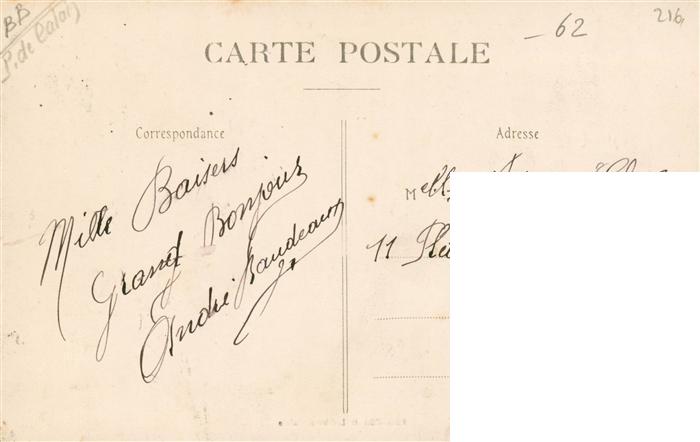 BB
P. de Calais
– 62
216
CARTE POSTALE
Correspondance
Adresse
Mille Baisers
Grand Bonjour
André
Melle
11